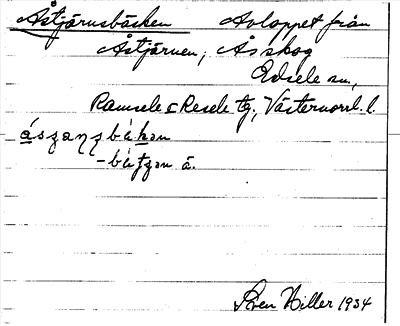 Åstjärnsbäcken Avloppet från
Åstjärnen, Åsskog
Edsele sn,
Ramsele o Resele tg, Västernorrl. l.
-bätʃən ä.
Sven Hiller 1934